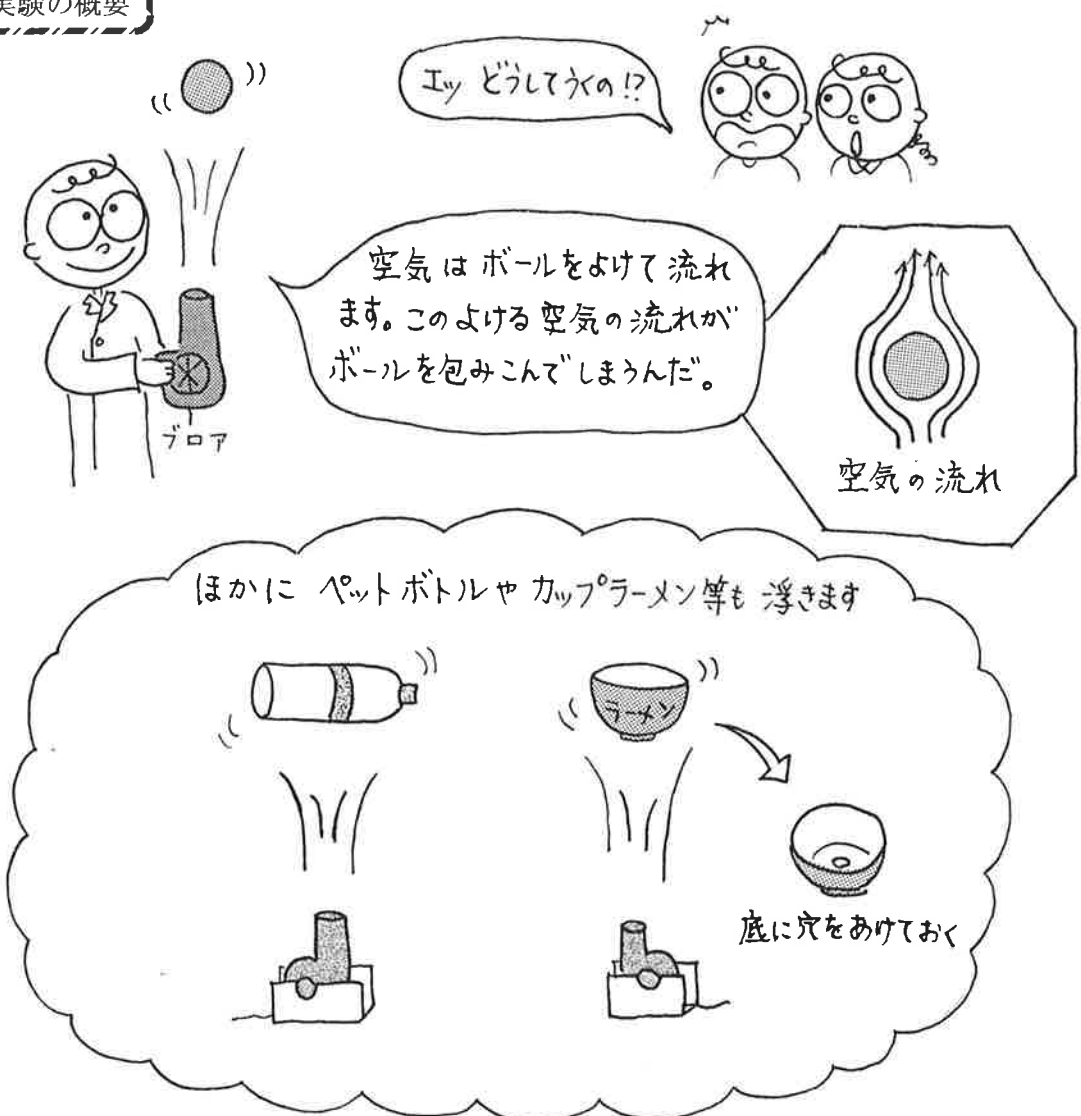 実験の概要
エッ どうしてうくの!?
空気はボールをよけて流れ
ます。このよける空気の流れが
ボールを包みこんでしまうんだ。
ブロア
空気の流れ
ほかに ペットボトルやカップラーメン等も浮きます
ラーメン
底に穴をあけておく